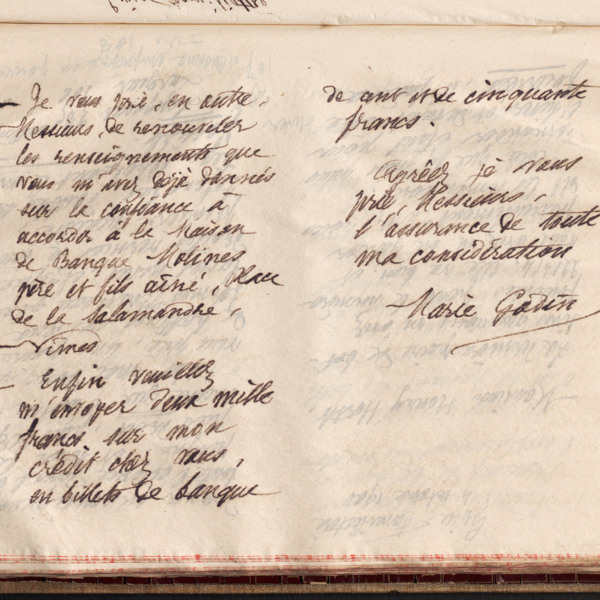 Je vous prie, en outre,
Messieurs, de renouveler
les renseignements que
vous m'avez déjà donnés
sur la confiance à
accorder à la Maison
de Banque Molines
père et fils aîné, place
de la Salamandre,
Nîmes
Enfin veuillez
m'envoyer deux mille
francs sur mon
crédit chez vous,
en billets de banque
de cent et de cinquante
francs.
Agréez je vous
prie, Messieurs,
l'assurance de toute
ma considération
Marie Godin